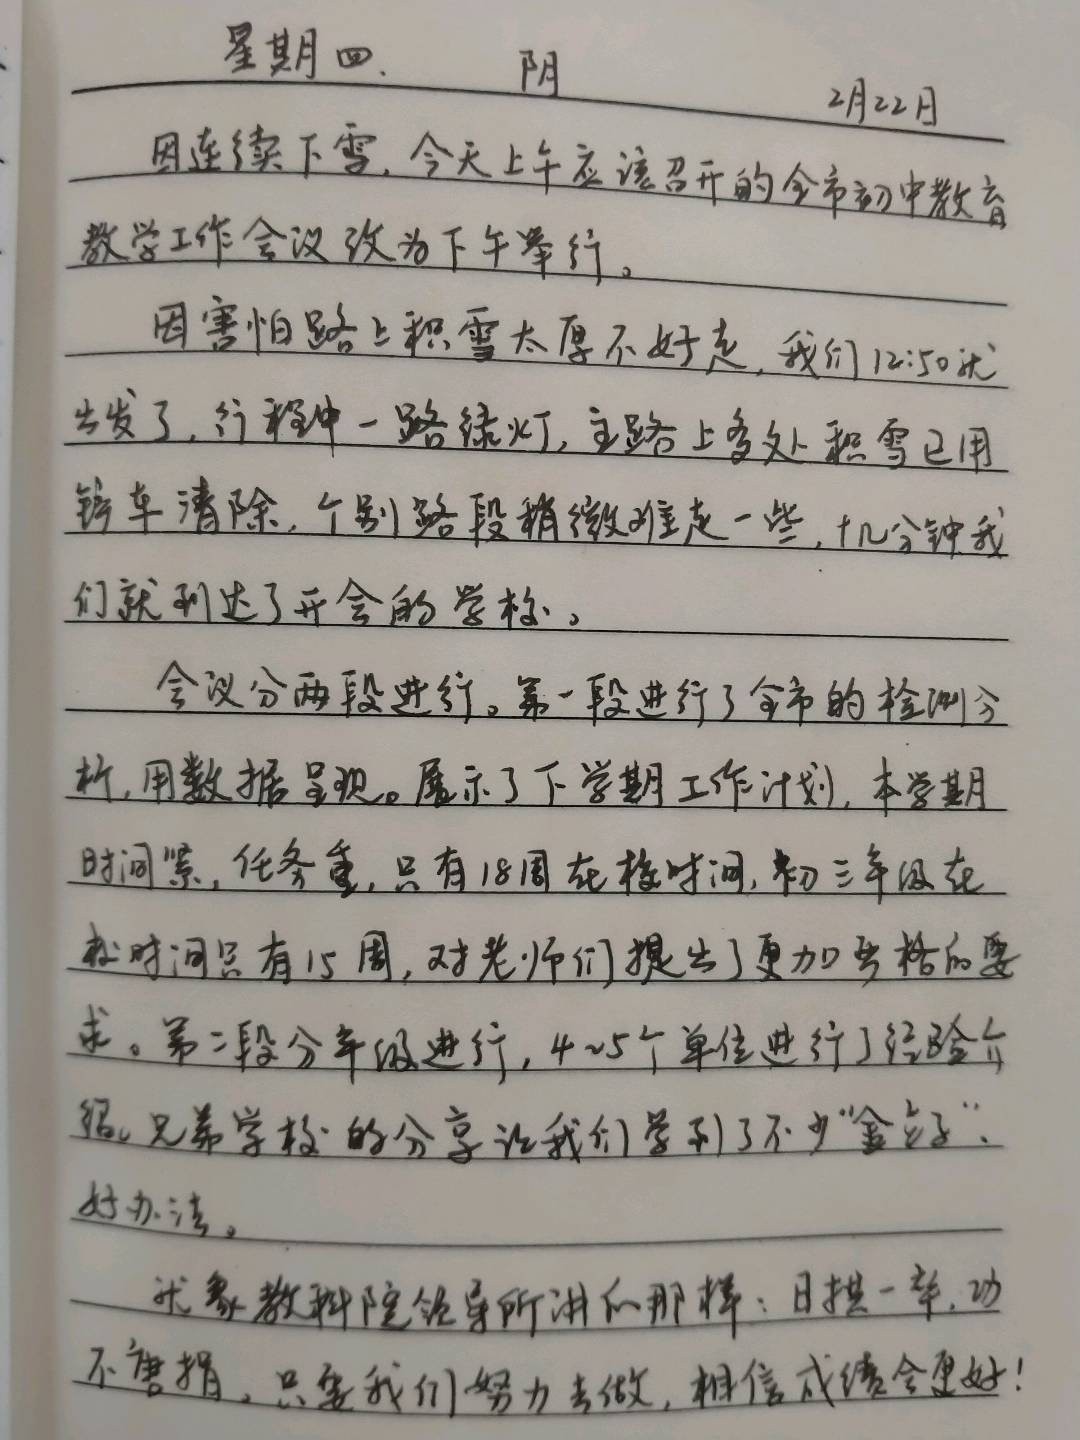 星期四. 阴 2月22日
因连续下雪,今天上午应该召开的全市初中教育
教学工作会议改为下午举行。
因害怕路上积雪太厚不好走,我们12:50就
出发了,行程中一路绿灯,主路上多处积雪已用
铲车清除,个别路段稍微难走一些,十几分钟我
们就到达了开会的学校。
会议分两段进行。第一段进行了全市的检测分
析,用数据呈现。展示了下学期工作计划,本学期
时间紧,任务重,只有18周在校时间,初三年级在
校时间只有15周,对老师们提出了更加严格的要
求。第二段分年级进行,4~5个单位进行了经验介
绍。兄弟学校的分享让我们学到了不少“金点子”、
好办法。
就象教科院领导所讲的那样:日拱一卒,功
不唐捐。只要我们努力去做,相信成绩会更好!